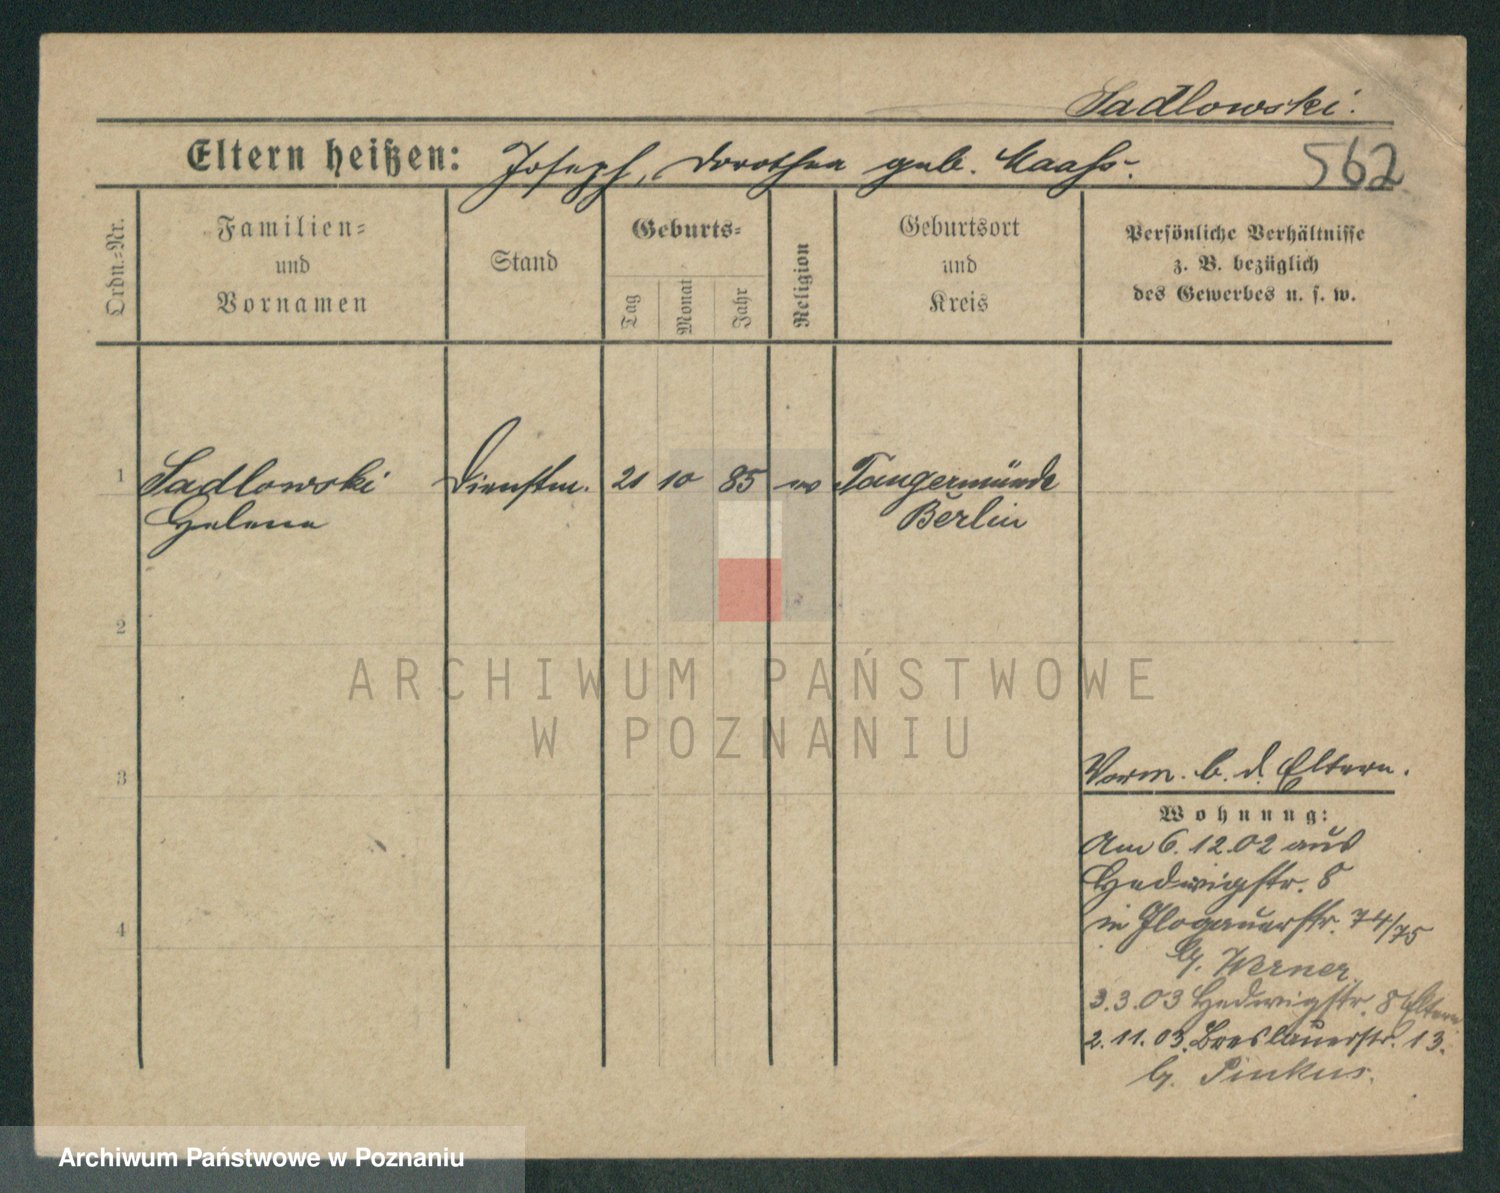 Sadlowski.
562
Eltern heißen: Joseph, Dorothea geb. Maaß.
Ordn.-Nr.
Familien-
und
Vornamen
Stand
Geburts-
Tag
Monat
Jahr
Religion
Geburtsort
und
Kreis
Persönliche Verhältnisse
z. B. bezüglich
des Gewerbes u. s. w.
1 Sadlowski Dienstm. 21 10 85 ev Tangermünde
Helene Berlin
2
ARCHIWUM PAŃSTWOWE
W POZNANIU
3
Vorm. b. d. Eltern.
Wohnung:
Am 6.12.02 aus
Hedwigstr. 8
in Glogauerstr. 74/75
b. Werner
3.3.03 Hedwigstr. 8 Eltern
2.11.03. Breslauerstr. 13.
b. Pinkus.
4
Archiwum Państwowe w Poznaniu